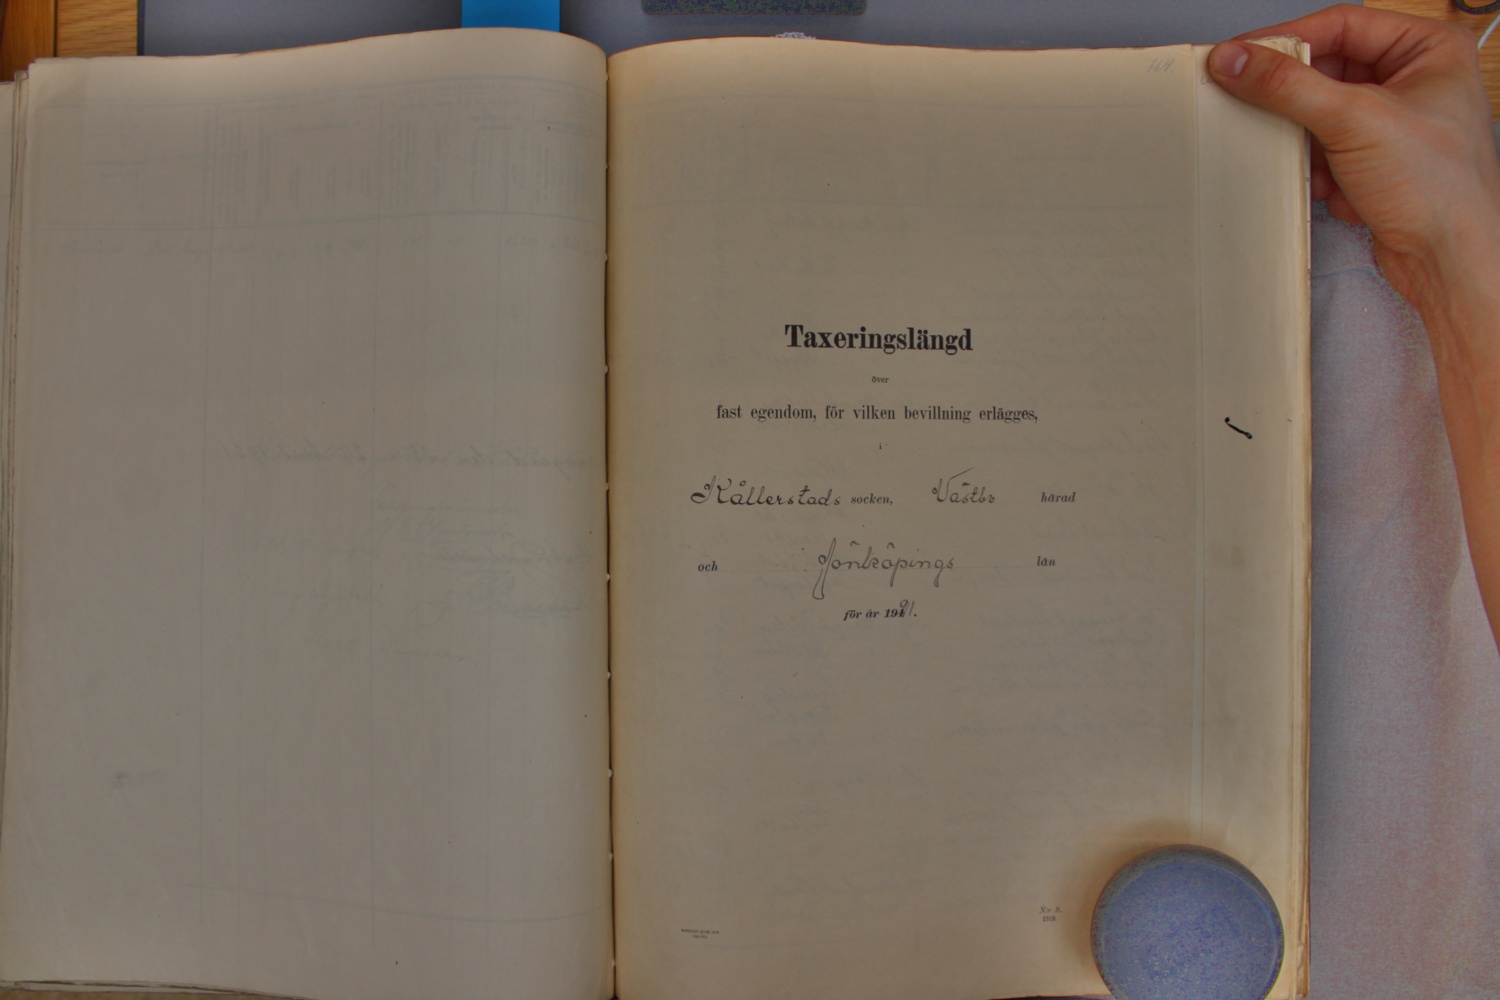 164.
Taxeringslängd
över
fast egendom, för vilken bevillning erlägges,
i
Kållerstads socken, Västbo härad
och Jönköpings län
för år 1921.
N:o 8.